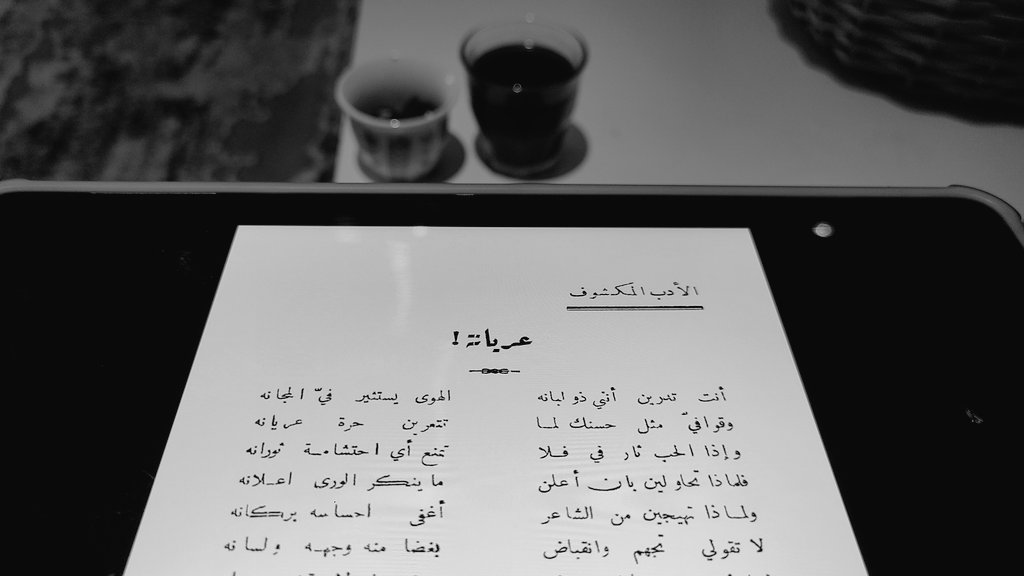 الأدب المكشوف
عريانة !
أنت تدرين أنني ذو لبانه الهوى يستثير فيّ المجانه
وقوافيّ مثل حسنك لما تتعرين حرة عريانه
وإذا الحب ثار في فلا تمنع أي احتشامة ثورانه
فلماذا تحاولين بان أعلن ما ينكر الورى اعلانه
ولماذا تهيجين من الشاعر أغفى احساسه بركانه
لا تقولي تجهم وانقباض بغضا منه وجهه ولسانه